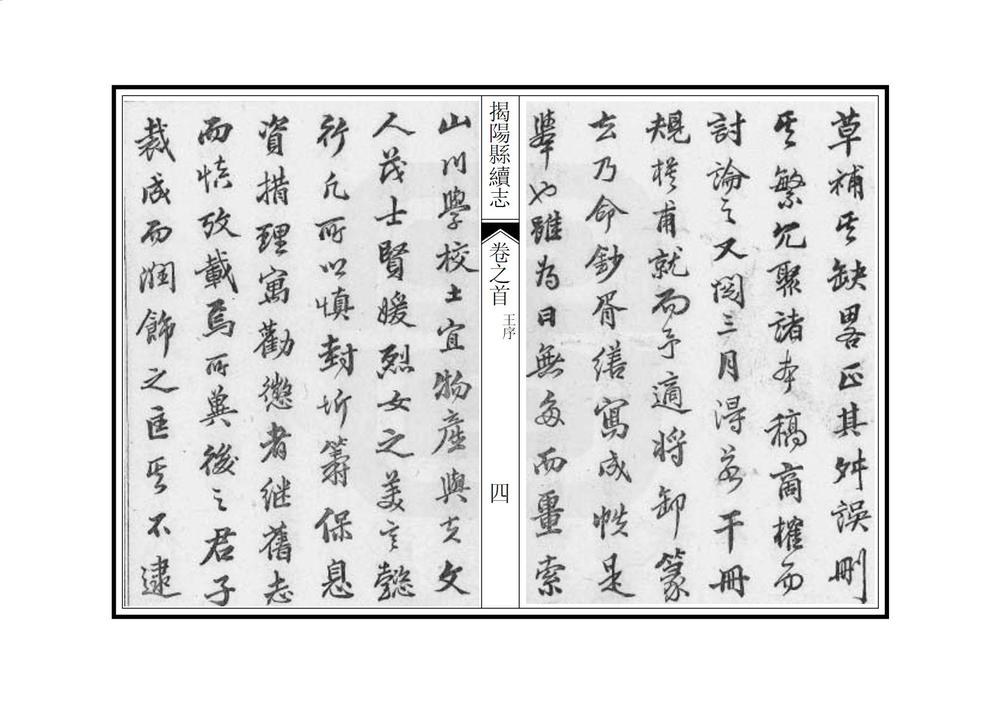 草補其缺畧正其舛誤刪
其繁冗聚諸本稿商榷而
討論之又閱三月得若干冊
規模甫就而予適將卸篆
去乃命鈔胥繕寫成帙是
舉也雖為日無多而重索
揭陽縣續志
卷之首
王序
四
山川學校土宜物產與夫文
人茂士賢媛烈女之美言懿
行凡所以慎封圻籌保息
資措理寓勸懲者繼舊志
而慎攷載焉所冀後之君子
裁成而潤飾之匡其不逮